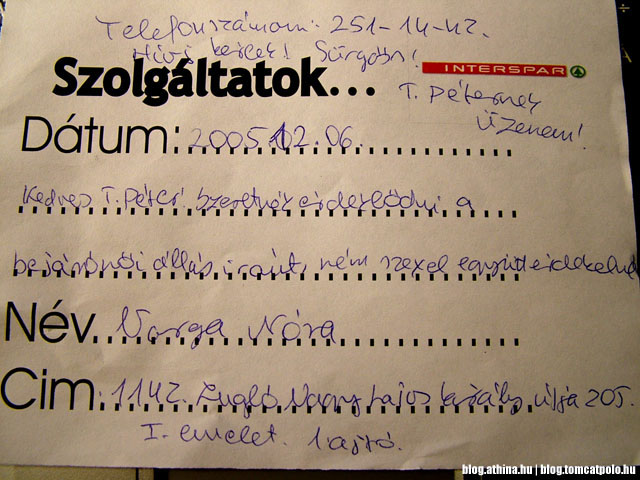 Telefonszámom: 251-14-42.
Hívj kérlek! Sürgősn!
Szolgáltatok...
INTERSPAR
T. Péternek
Üzenem!
Dátum: 2005 12.06.
Kedves T. Péter! Szeretnék érdeklődni a
bejárónői állás iránt, ném szexel együtt érdekelne
Név Varga Nóra
Cim: 1142. Zugló Nagy Lajos király útja 205.
I. emelet. 1 ajtó.
blog.athina.hu | blog.tomcatpolo.hu